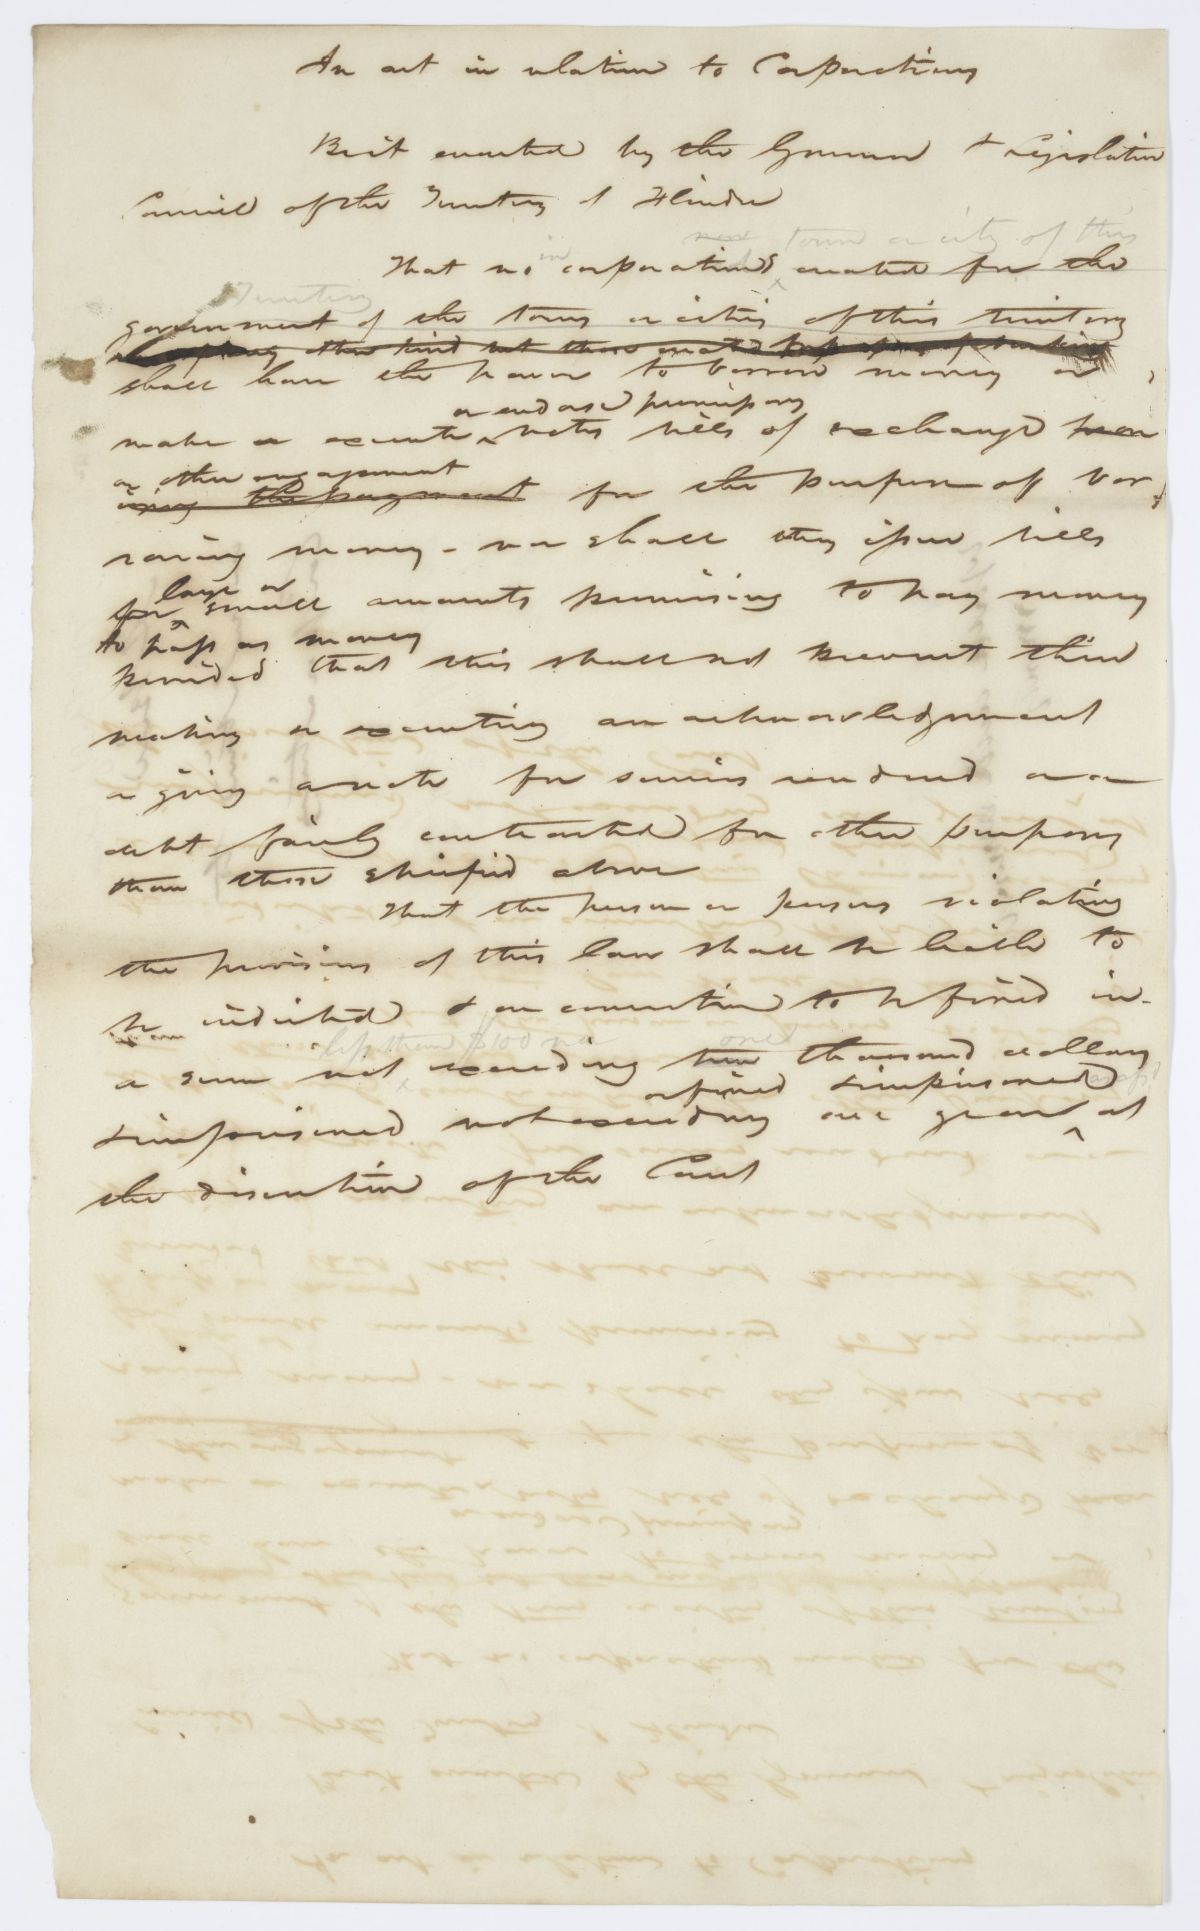 An act in relation to Corporations
Be it enacted by the Governor & Legislative
Council of the Territory of Florida
town or city of this
That no in corporations created for the
Territory
government of the towns or cities of this territory
any other kind but those created
shall have the power to borrow money or
or endorse promissory
make or execute notes bills of exchange
or other engagement
the payment for the purpose of bor
rowing money - nor shall they issue bills
large or
for small amounts promising to pay money
to pass as money
provided that this shall not prevent their
making or executing an acknowledgment
or giving a note for services rendered or a
debt fairly contracted for other purposes
than those specified above
That the person or persons violating
the provisions of this law shall be liable to
be indicted & on conviction to be fined in
less than $100 nor one
a sum not exceeding two thousand dollars
or fined & imprisoned
& imprisoned not exceeding one year at
the discretion of the Court